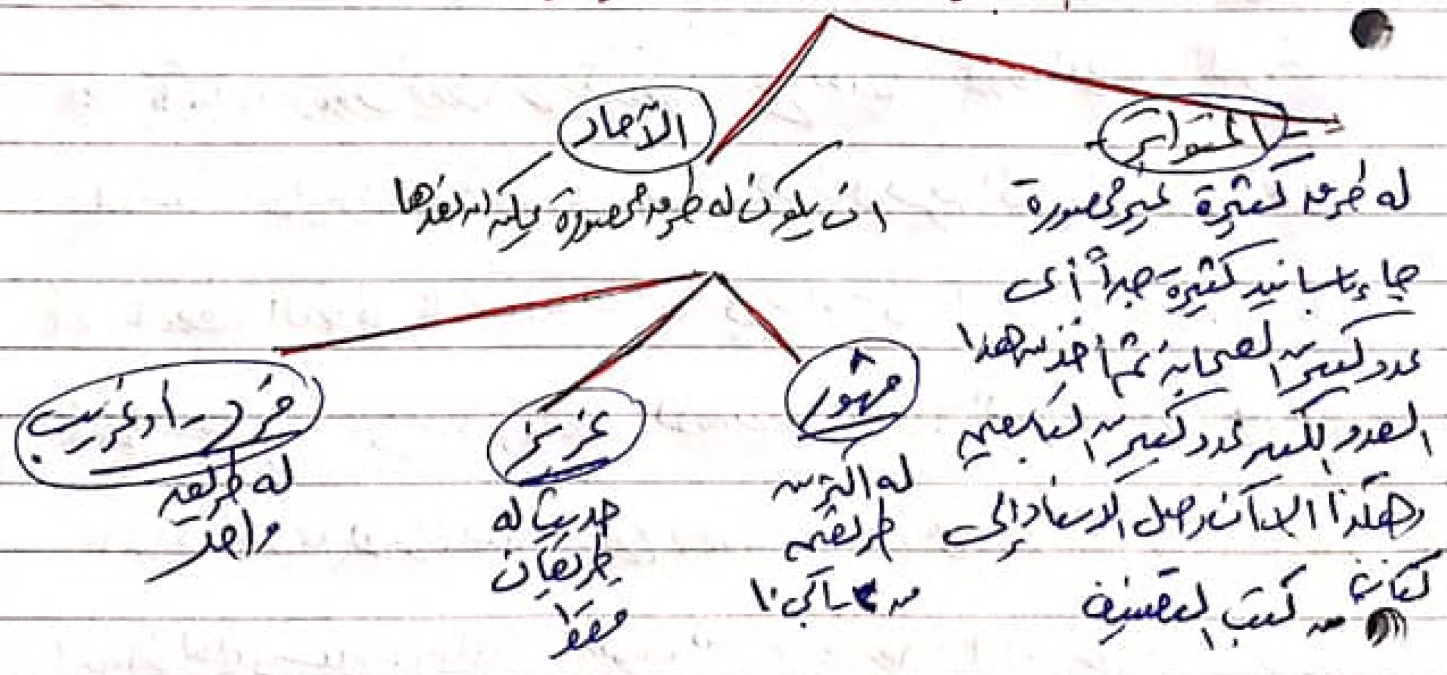 المتواتر
له طرق كثيرة غير محصورة
جاء بأسانيد كثيرة جداً أى
عدد كبير من الصحابة ثم أخذ من هذا
العدد الكبير عدد كبير من التابعين
وهكذا الى أن وصل الاسناد إلى
كتاب من كتب التصنيف
الآحاد
ان يكون له طرق محصورة يمكن ان نعدها
مشهور
له اكثر من
طريقين
من ٣ الى ١٠
عزيز
حديث له
طريقان
فقط
فرد - او غريب
له طريق
واحد